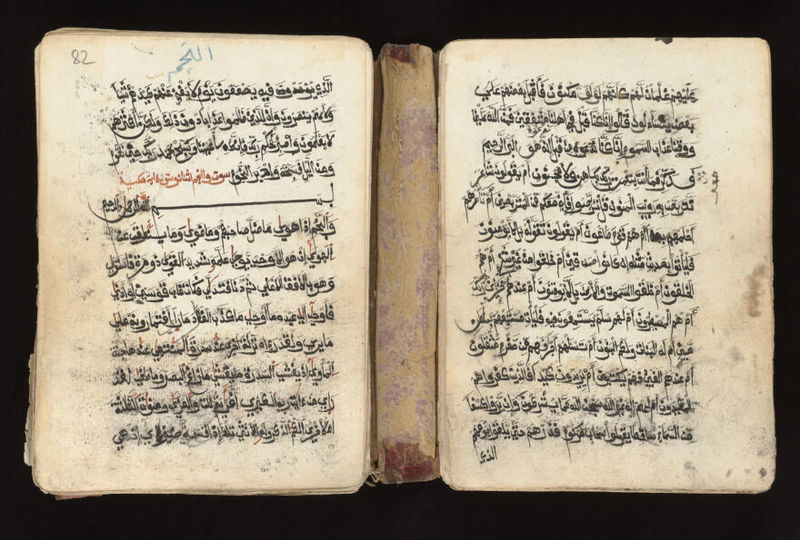 عليهم غلمان لهم كأنهم لؤلؤ مكنون فأقبل بعضهم على
بعض يتساءلون قالوا إنا كنا قبل في أهلنا مشفقين فمن الله علينا
ووقينا عذاب السموم إنا كنا من قبل ندعوه إنه هو البر الرحيم
فذكر فما أنت بنعمت ربك بكاهن ولا مجنون أم يقولون شاعر
نتربص به ريب المنون قل تربصوا فإني معكم من المتربصين أم تأمرهم
أحلمهم بهذا أم هم قوم طاغون أم يقولون تقوله بل لا يومنون
فليأتوا بحديث مثله إن كانوا صدقين أم خلقوا من غير شيء أم هم
الخلقون أم خلقوا السموت والارض بل لا يوقنون أم عندهم خزائن ربك
أم هم المصيطرون أم لهم سلم يستمعون فيه فليأت مستمعهم بسلطن
مبين أم له البنت ولكم البنون أم تسلهم أجرا فهم من مغرم مثقلون
أم عندهم الغيب فهم يكتبون أم يريدون كيدا فالذين كفروا هم
المكيدون أم لهم إله غير الله سبحن الله عما يشركون وإن يروا كسفا
من السماء ساقطا يقولوا سحاب مركوم فذرهم حتى يلقوا يومهم
الذي
82
النجم
الذي فيه يصعقون يوم لا يغني عنهم كيدهم شيئا
ولا هم ينصرون وإن للذين ظلموا عذابا دون ذلك ولكن أكثرهم
لا يعلمون واصبر لحكم ربك فإنك بأعيننا وسبح بحمد ربك حين تقوم
ومن اليل فسبحه وإدبر النجوم سورة والنجم مكية
بسم الله الرحمن الرحيم
والنجم إذا هوى ما ضل صاحبكم وما غوى وما ينطق عن
الهوى إن هو إلا وحي يوحى علمه شديد القوى ذو مرة فاستوى
وهو بالافق الاعلى ثم دنا فتدلى فكان قاب قوسين أو أدنى
فأوحى إلى عبده ما أوحى ما كذب الفؤاد ما رأى أفتمرونه على
ما يرى ولقد رءاه نزلة أخرى عند سدرة المنتهى عندها جنة
المأوى إذ يغشى السدرة ما يغشى ما زاغ البصر وما طغى لقد
رأى من ءايت ربه الكبرى أفرءيتم اللت والعزى ومنوة الثالثة
الاخرى ألكم الذكر وله الانثى تلك إذا قسمة ضيزى إن هي